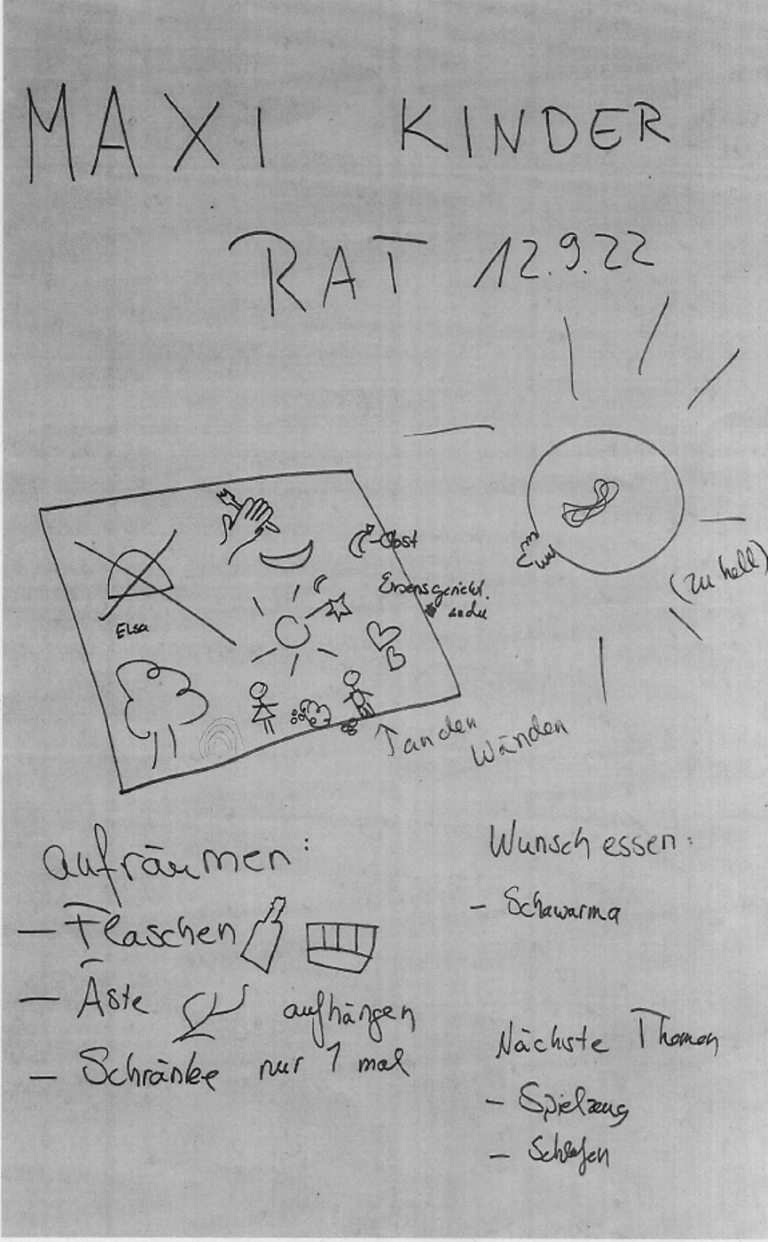 MAXI KINDER
RAT 12.9.22
Obst
Elsa
(zu hell)
↑ an den
Wänden
aufräumen:
– Flaschen
– Äste aufhängen
– Schränke nur 1 mal
Wunschessen:
– Schawarma
Nächste Themen
– Spielzeug
– Schlafen